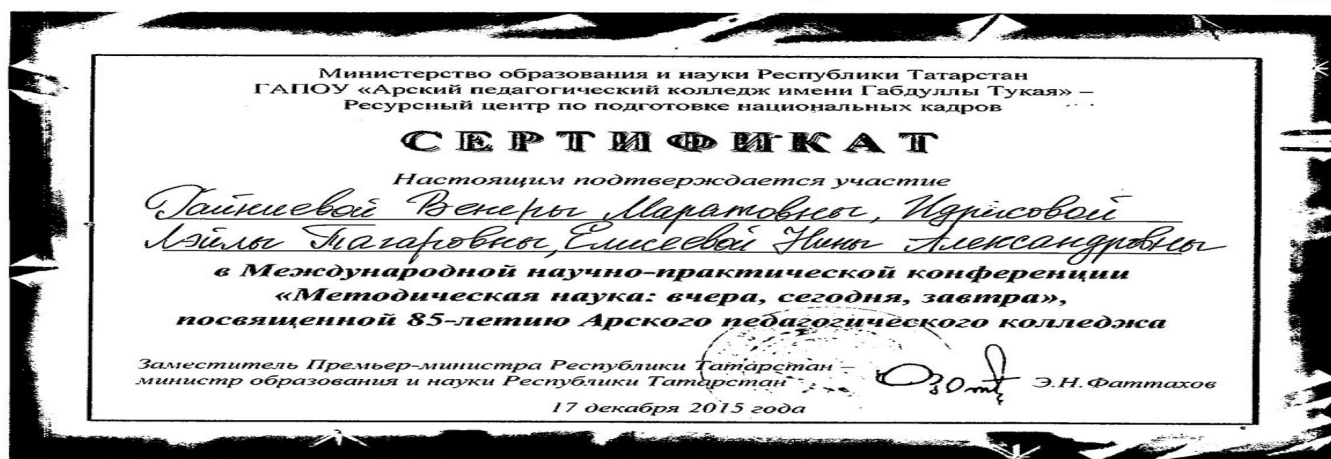 Министерство образования и науки Республики Татарстан
ГАПОУ «Арский педагогический колледж имени Габдуллы Тукая» –
Ресурсный центр по подготовке национальных кадров
СЕРТИФИКАТ
Настоящим подтверждается участие
Гайниевой Венеры Маратовны, Идрисовой
Ляйлы Тагаровны, Елисеевой Нины Александровны
в Международной научно-практической конференции
«Методическая наука: вчера, сегодня, завтра»,
посвященной 85-летию Арского педагогического колледжа
Заместитель Премьер-министра Республики Татарстан –
министр образования и науки Республики Татарстан
Э.Н.Фаттахов
17 декабря 2015 года